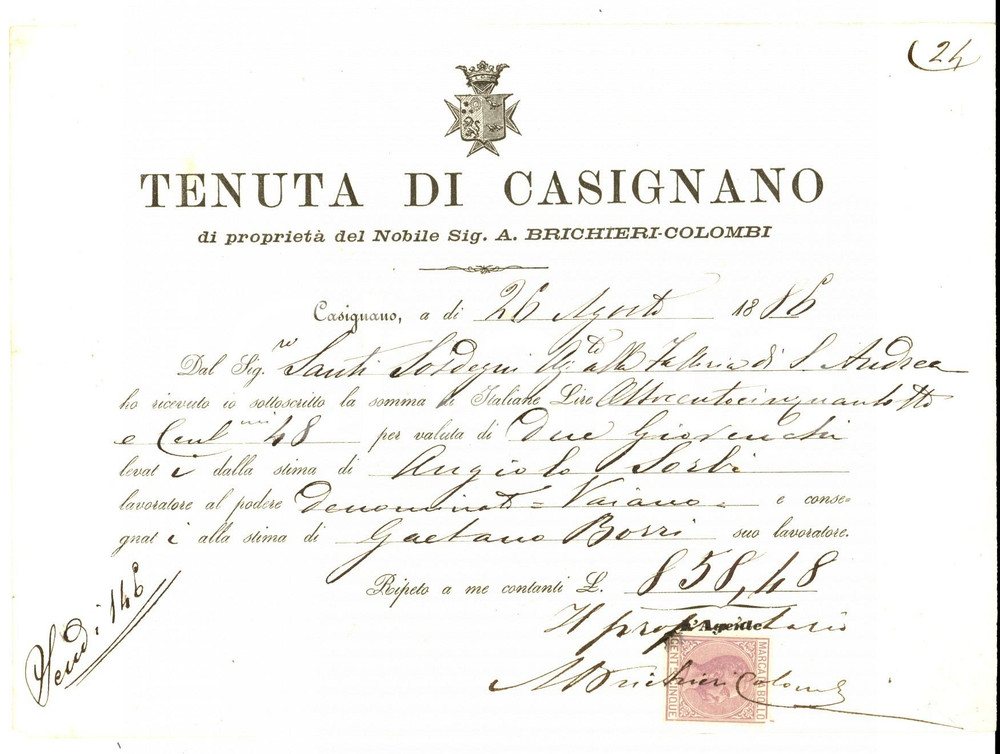 (24
TENUTA DI CASIGNANO
di proprietà del Nobile Sig. A. BRICHIERI-COLOMBI
Casignano, a di 26 Agosto 1886
Dal Sig.re Santi Sordegni Ag.te alla Fattoria di S. Andrea
ho ricevuto io sottoscritto la somma di Italiane Lire Ottocentocinquantotto
e Cent.mi 48 per valuta di due Giovenchi
levat i dalla stima di Angiolo Sorbi
lavoratore al podere denominato = Vaiano = e conse-
gnat i alla stima di Gaetano Borri suo lavoratore.
Ripeto a me contanti L. 858,48
Il proprietario
L'Agente
A Brichieri Colombi
MARCA DA BOLLO
CENT. CINQUE
Vendi 146